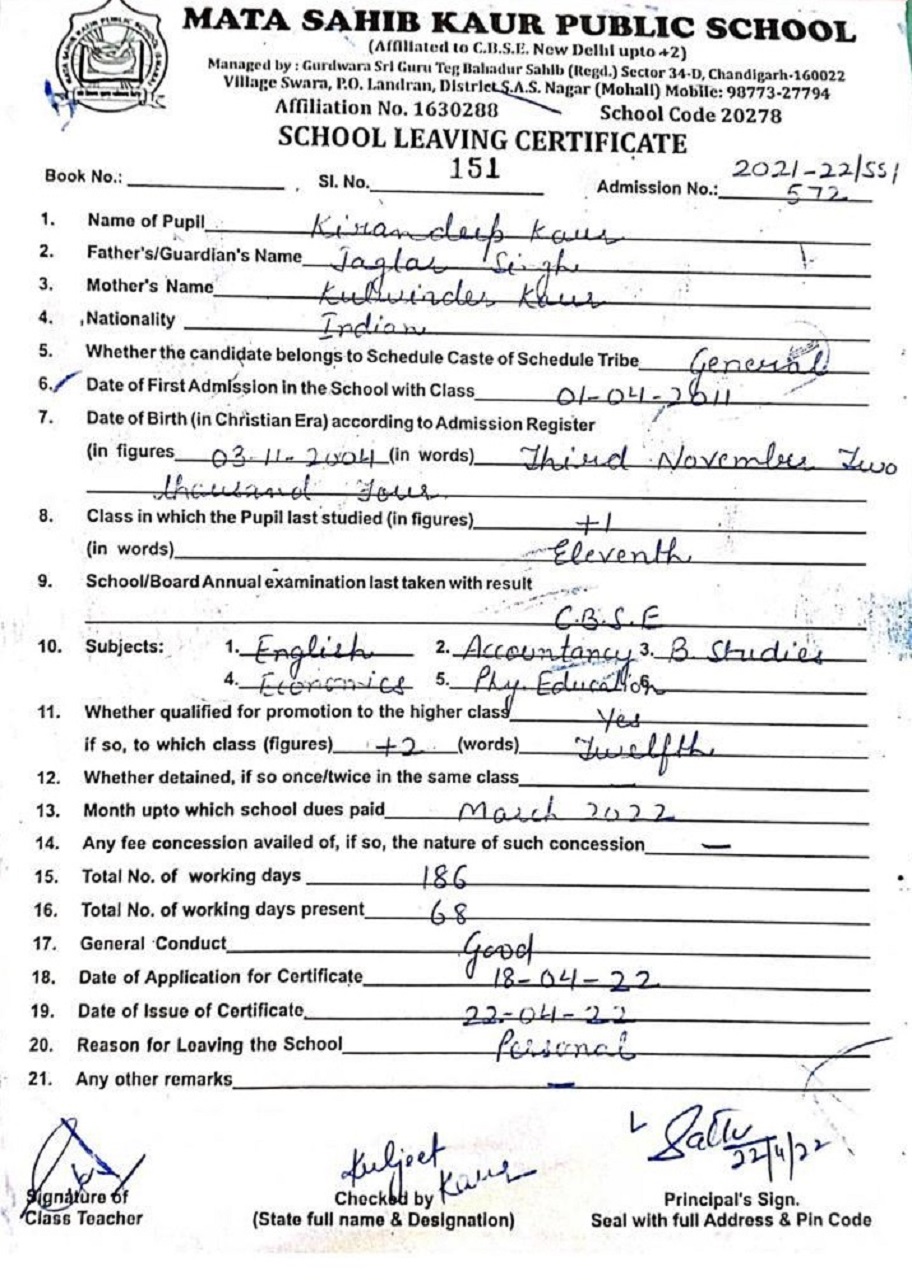 MATA SAHIB KAUR PUBLIC SCHOOL
(Affiliated to C.B.S.E. New Delhi upto +2)
Managed by : Gurdwara Sri Guru Teg Bahadur Sahib (Regd.) Sector 34-D, Chandigarh-160022
Village Swara, P.O. Landran, District S.A.S. Nagar (Mohali) Mobile: 98773-27794
Affiliation No. 1630288 School Code 20278
SCHOOL LEAVING CERTIFICATE
Book No.: Sl. No. 151 Admission No.: 2021-22/SS/
572
1. Name of Pupil Kirandeep Kaur
2. Father's/Guardian's Name Jagtar Singh
3. Mother's Name Kulwinder Kaur
4. Nationality Indian
5. Whether the candidate belongs to Schedule Caste of Schedule Tribe General
6. Date of First Admission in the School with Class 01-04-2011
7. Date of Birth (in Christian Era) according to Admission Register
(in figures 03-11-2004 (in words) Third November Two
thousand Four
8. Class in which the Pupil last studied (in figures) +1
(in words) Eleventh
9. School/Board Annual examination last taken with result
C.B.S.E
10. Subjects: 1. English 2. Accountancy 3. B. Studies
4. Economics 5. Phy. Education 6.
11. Whether qualified for promotion to the higher class Yes
if so, to which class (figures) +2 (words) Twelfth
12. Whether detained, if so once/twice in the same class
13. Month upto which school dues paid March 2022
14. Any fee concession availed of, if so, the nature of such concession —
15. Total No. of working days 186
16. Total No. of working days present 68
17. General Conduct Good
18. Date of Application for Certificate 18-04-22
19. Date of Issue of Certificate 22-04-22
20. Reason for Leaving the School Personal
21. Any other remarks —
Kuljeet
Kaur
22/4/22
Signature of Checked by Principal's Sign.
Class Teacher (State full name & Designation) Seal with full Address & Pin Code